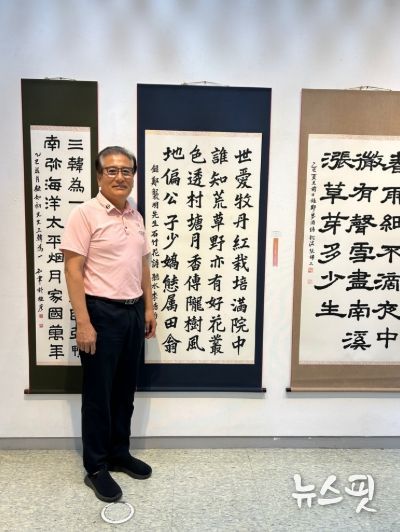 春雨細不滴夜中
微有聲雪盡南溪
漲草芽多少生
世愛牡丹紅栽培滿院中
誰知荒草野亦有好花叢
色透村塘月香傳隴樹風
地偏公子少嬌態屬田翁
錄鄭襲明先生石竹花詩
三韓為一
南弥海洋太平烟月家國萬年
뉴스핏